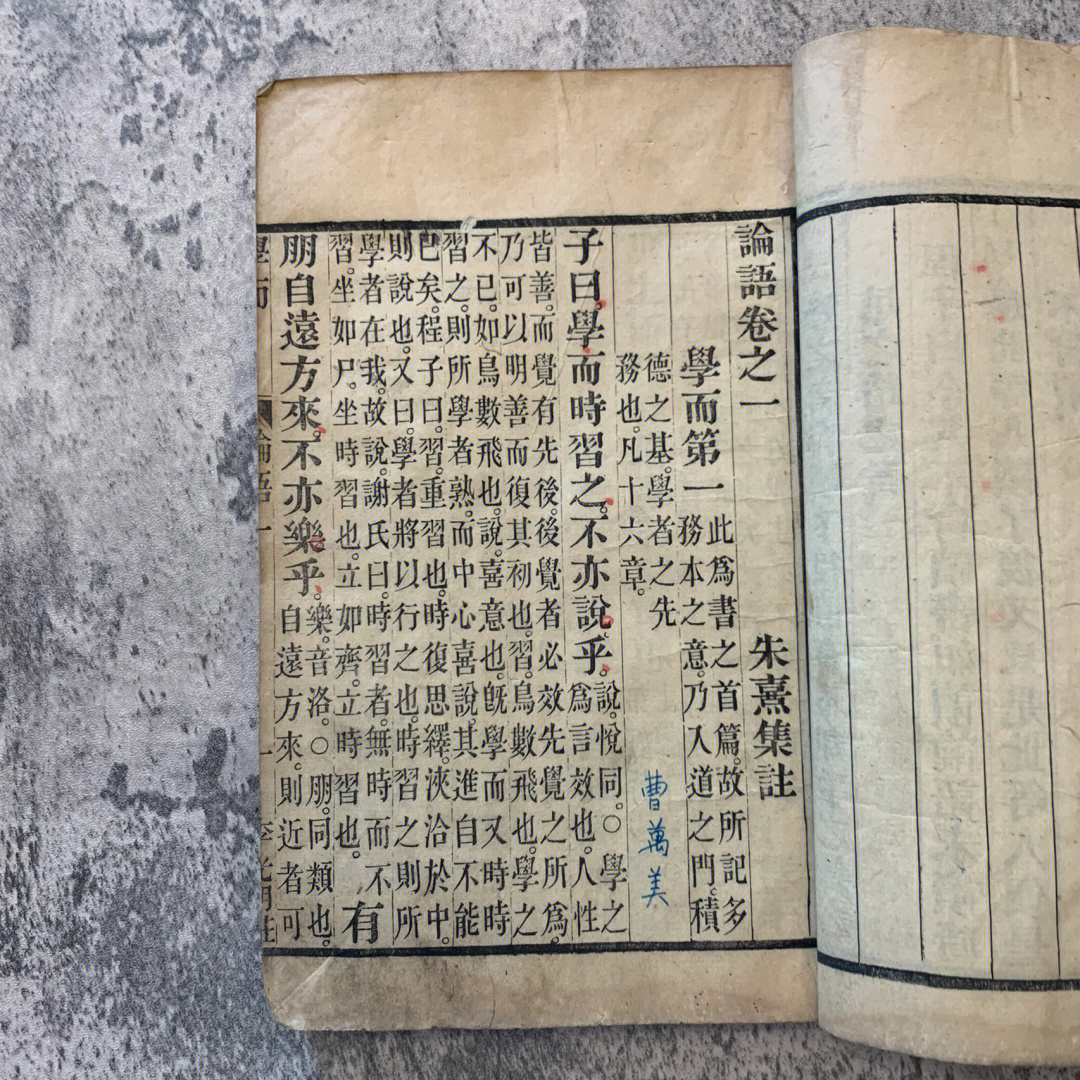 論語卷之一 朱熹集註
學而第一 此爲書之首篇。故所記多
務本之意。乃入道之門。積
德之基。學者之先
務也。凡十六章。
曹萬美
子曰。學而時習之。不亦說乎。說。悅同。○學之
爲言效也。人性
皆善。而覺有先後。後覺者必效先覺之所爲。
乃可以明善而復其初也。習。鳥數飛也。學之
不已。如鳥數飛也。說。喜意也。旣學而又時時
習之。則所學者熟。而中心喜說。其進自不能
已矣。程子曰。習。重習也。時復思繹。浹洽於中。
則說也。又曰。學者將以行之也。時習之則所
學者在我。故說。謝氏曰。時習者。無時而不
習。坐如尸。坐時習也。立如齊。立時習也。
有
朋自遠方來。不亦樂乎。樂。音洛。○朋。同類也。
自遠方來。則近者可